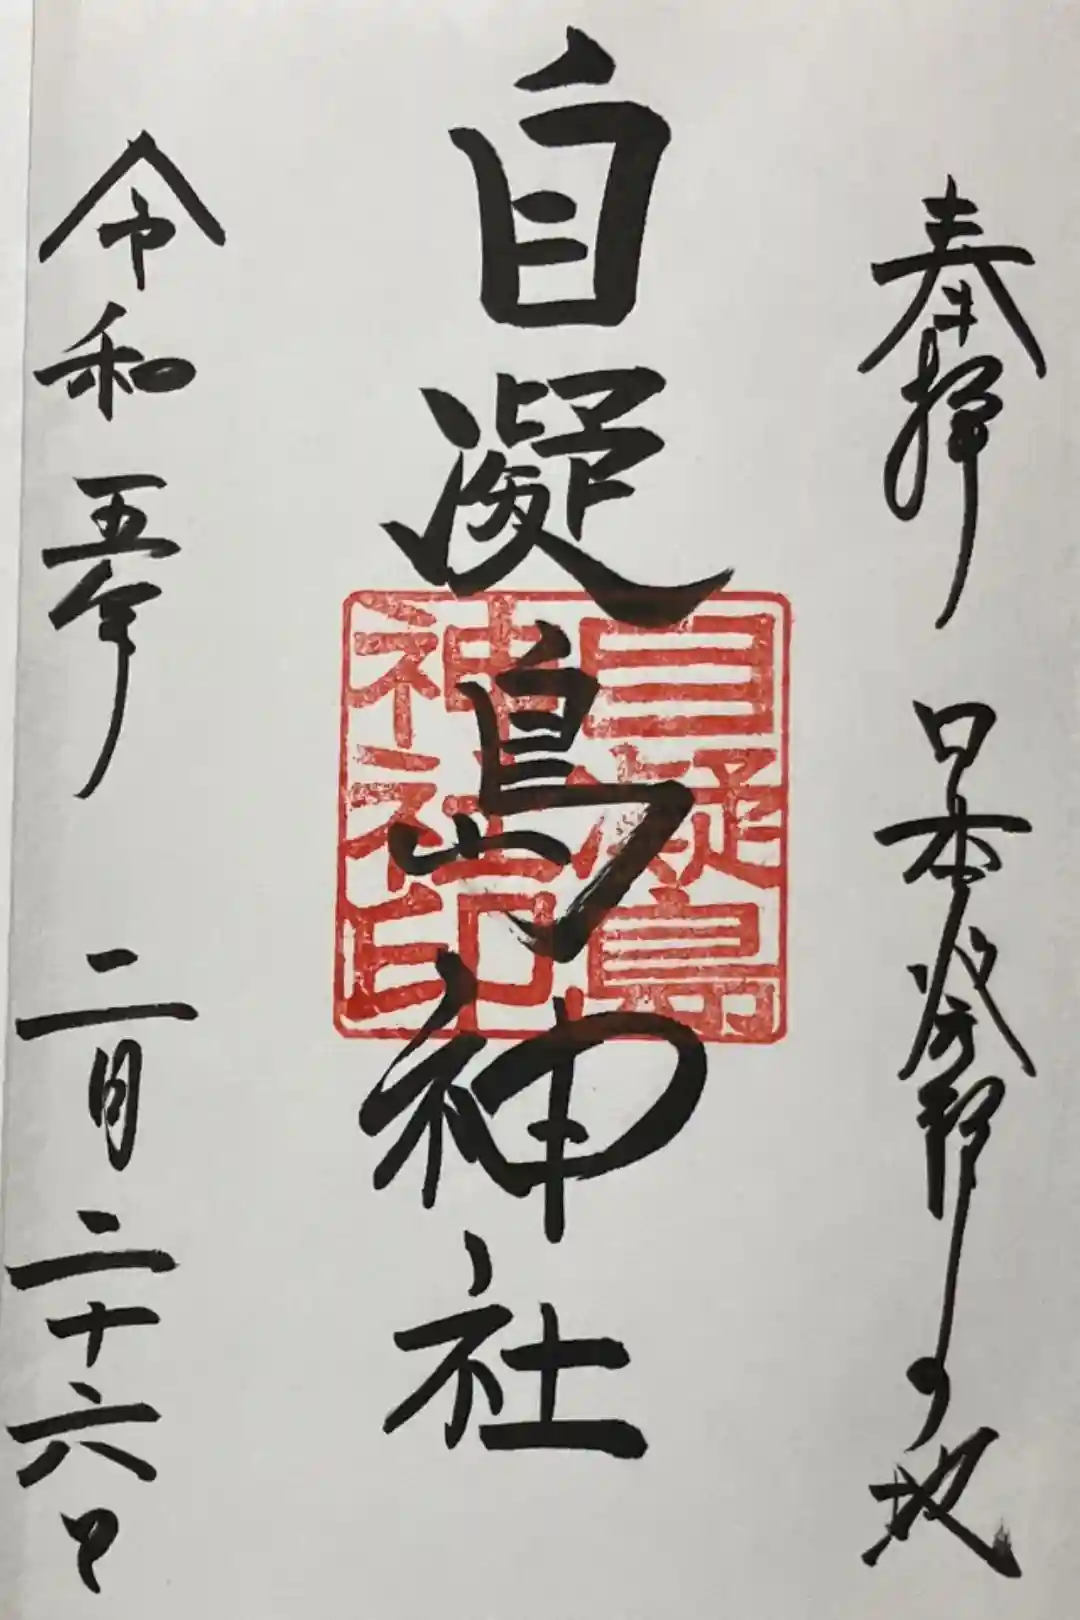 奉拝 日本発祥の地
自凝島神社
自凝島神社印
令和五年 二月二十六日